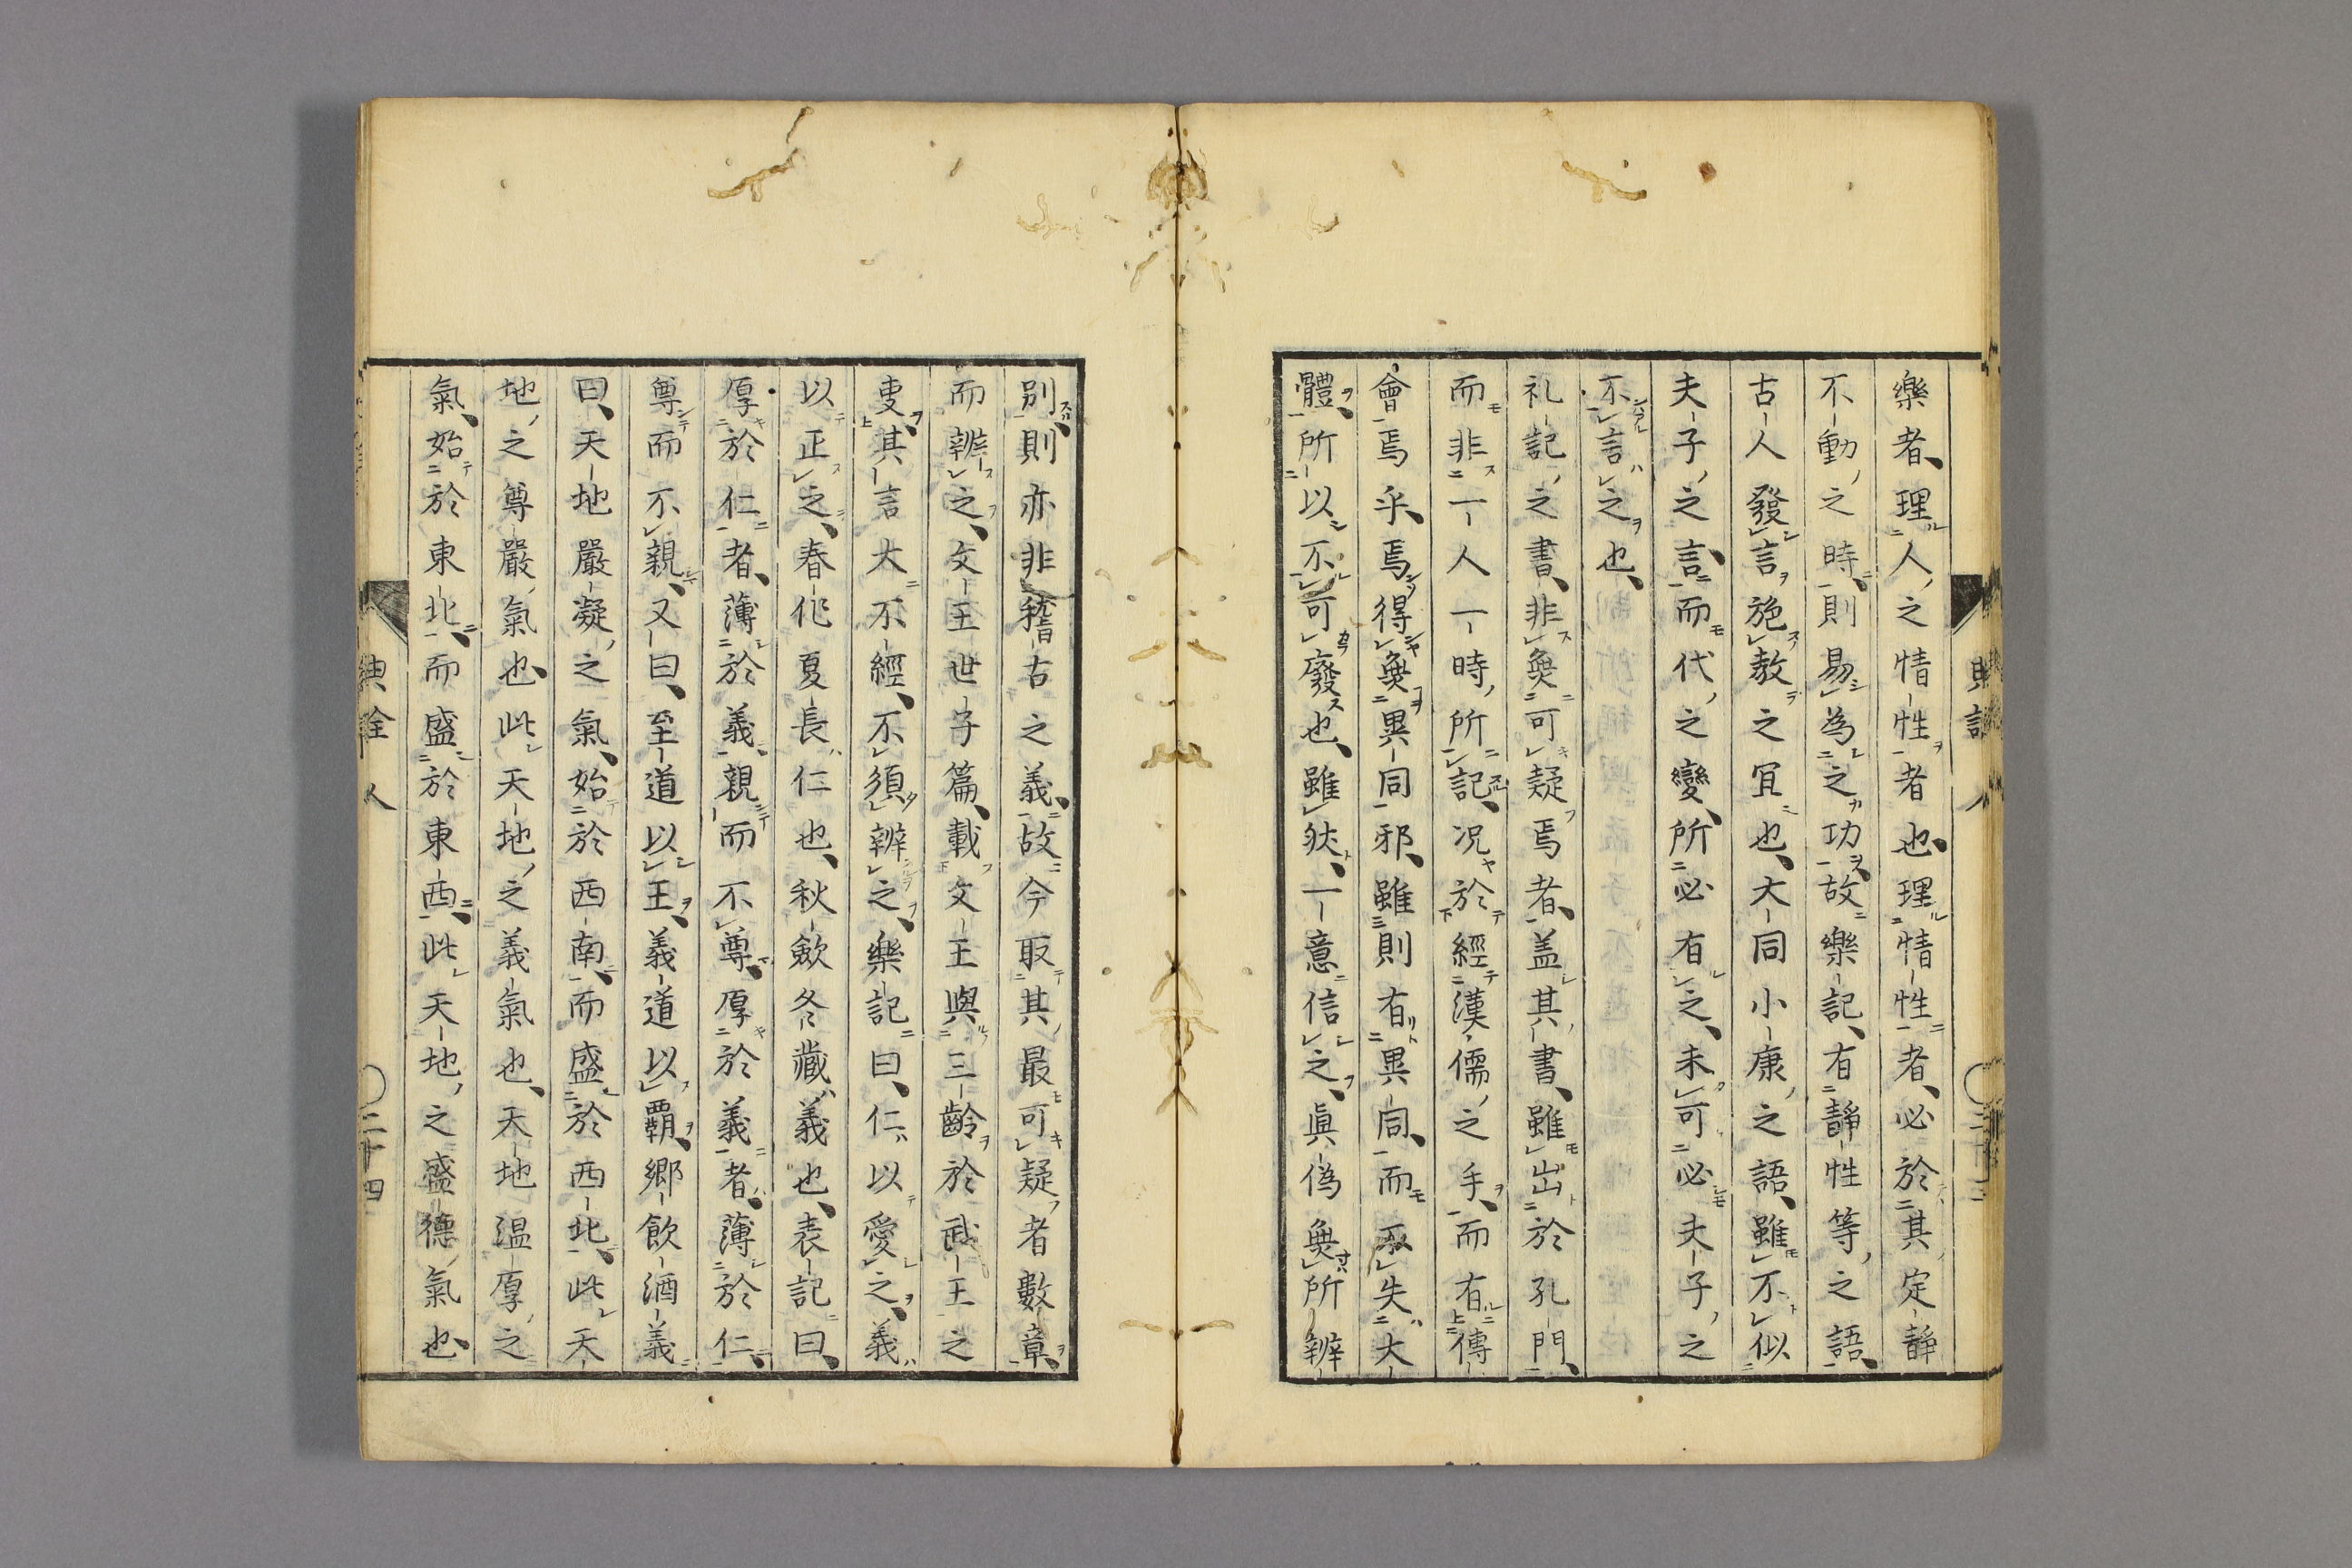 樂者、理人之情性者也、理情性者、必於其定靜
不動之時、則易為之功、故樂記、有靜性等之語、
古人發言施教之冝也、大同小康之語、雖不似
夫子之言、而代之變、所必有之、未可必夫子之
不言之也、
礼記之書、非無可疑焉者、盖其書、雖出於孔門、
而非一人一時所記、况於經漢儒之手、而有傳
會焉乎、焉得無異同邪、雖則有異同、而不失大
體、所以不可廢也、雖然、一意信之、眞偽無所辨
別、則亦非稽古之義、故今取其最可疑者數章、
而辨之、文王世子篇、載文王與三齡於武王之
叓、其言大不經、不須辨之、樂記曰、仁以愛之、義
以正之、春作夏長仁也、秋斂冬藏義也、表記曰、
厚於仁者、薄於義、親而不尊、厚於義者、薄於仁、
尊而不親、又曰、至道以王、義道以覇、鄉飲酒義
曰、天地嚴凝之氣、始於西南、而盛於西北、此天
地之尊嚴氣也、此天地之義氣也、天地温厚之
氣、始於東北、而盛於東西、此天地之盛德氣也、
典詮 人 〇二十四